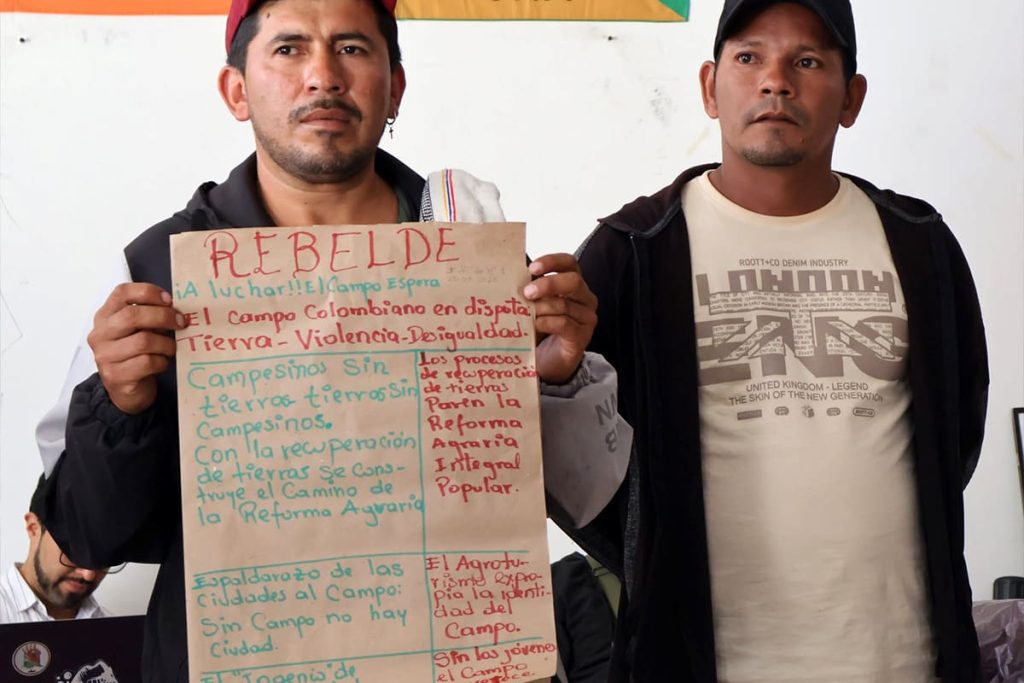 REBELDE
¡A luchar!! El Campo Espera
El Campo Colombiano en disputa:
Tierra - Violencia - Desigualdad.
Campesinos sin
tierras tierras sin
Campesinos.
Con la recuperación
de tierras se Cons-
truye el Camino de
la Reforma Agraria
Los procesos
de recuperación
de tierras
Paren la
Reforma
Agraria
Integral
Popular.
Espaldarazo de las
Ciudades al Campo:
Sin Campo no hay
Ciudad.
El Agrotu-
rismo expro-
pia la identi-
dad del
Campo.
El "Ingenio" de
Sin los jóvenes
el Campo
ROOTT+CO DENIM INDUSTRY
LONDON
UNITED KINGDOM - LEGEND
THE SKIN OF THE NEW GENERATION